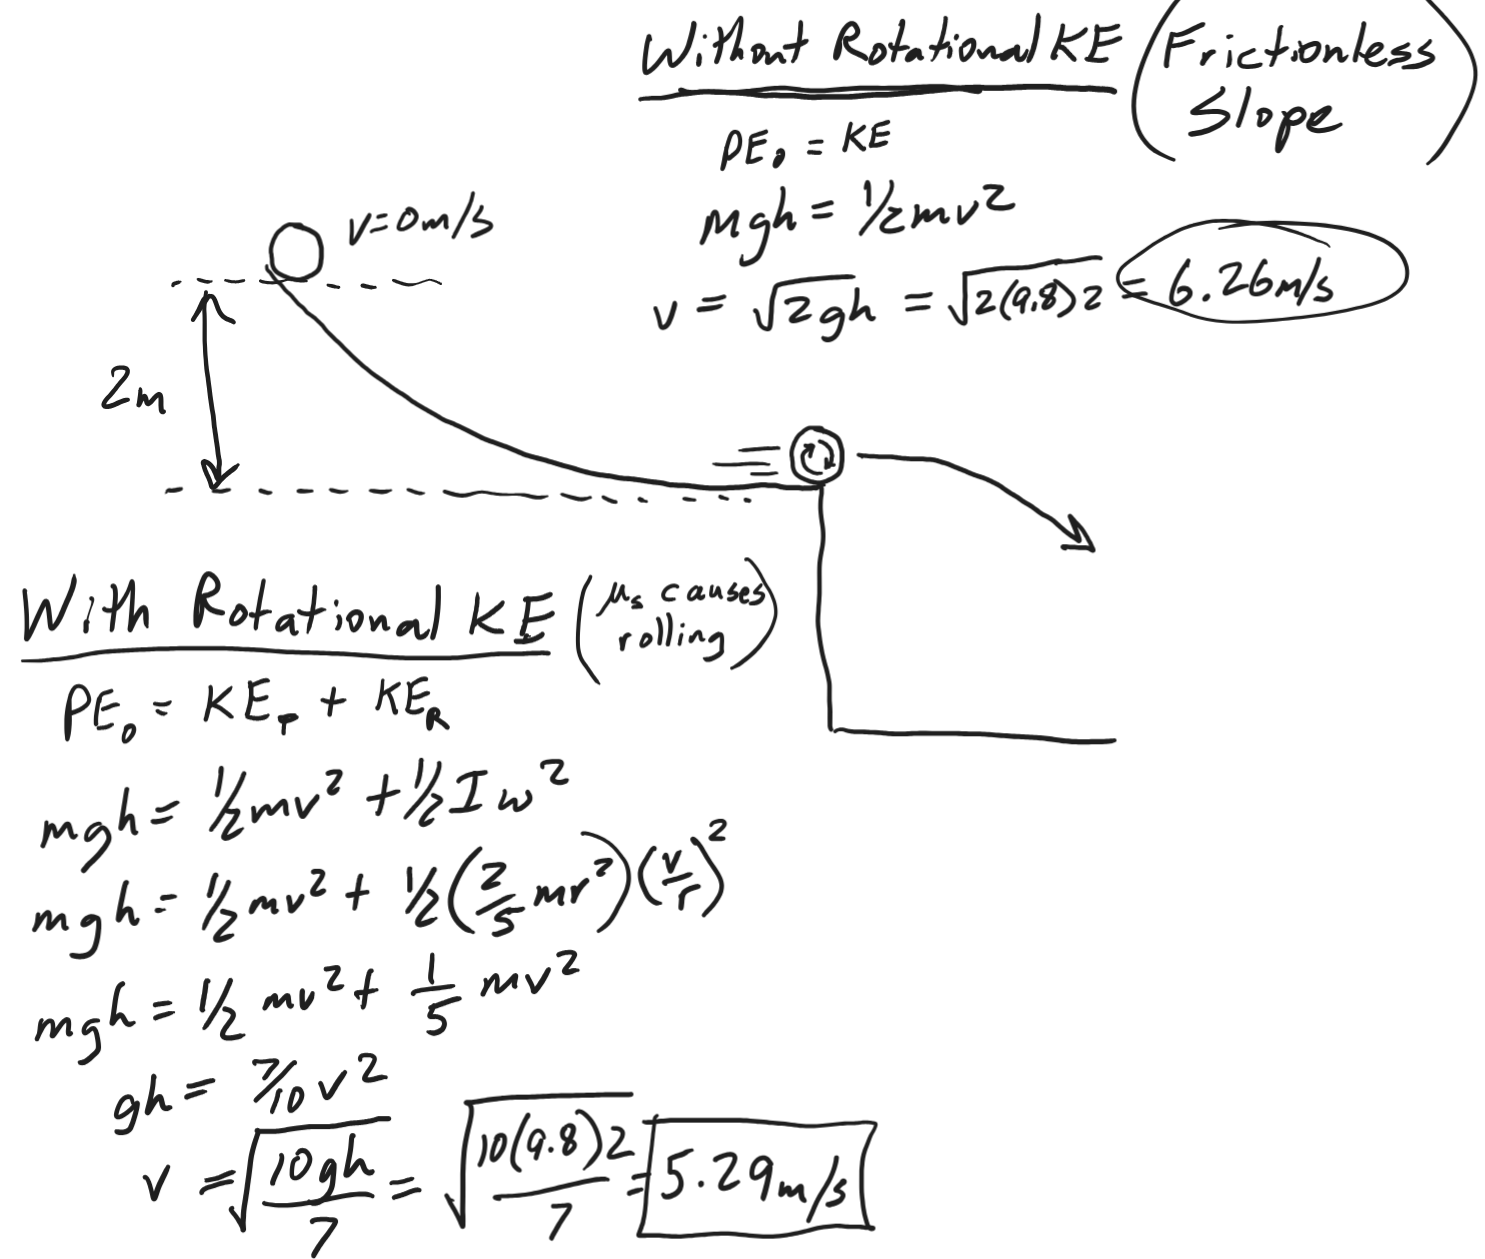 Without Rotational KE (Frictionless Slope)
PE₀ = KE
mgh = 1/2mv²
v = √2gh = √2(9.8)2 = 6.26m/s
v=0m/s
2m
With Rotational KE (μₛ causes rolling)
PE₀ = KE_T + KE_R
mgh = 1/2mv² + 1/2Iω²
mgh = 1/2mv² + 1/2(2/5mr²)(v/r)²
mgh = 1/2 mv² + 1/5 mv²
gh = 7/10v²
v = √(10gh/7) = √(10(9.8)2/7) = 5.29m/s